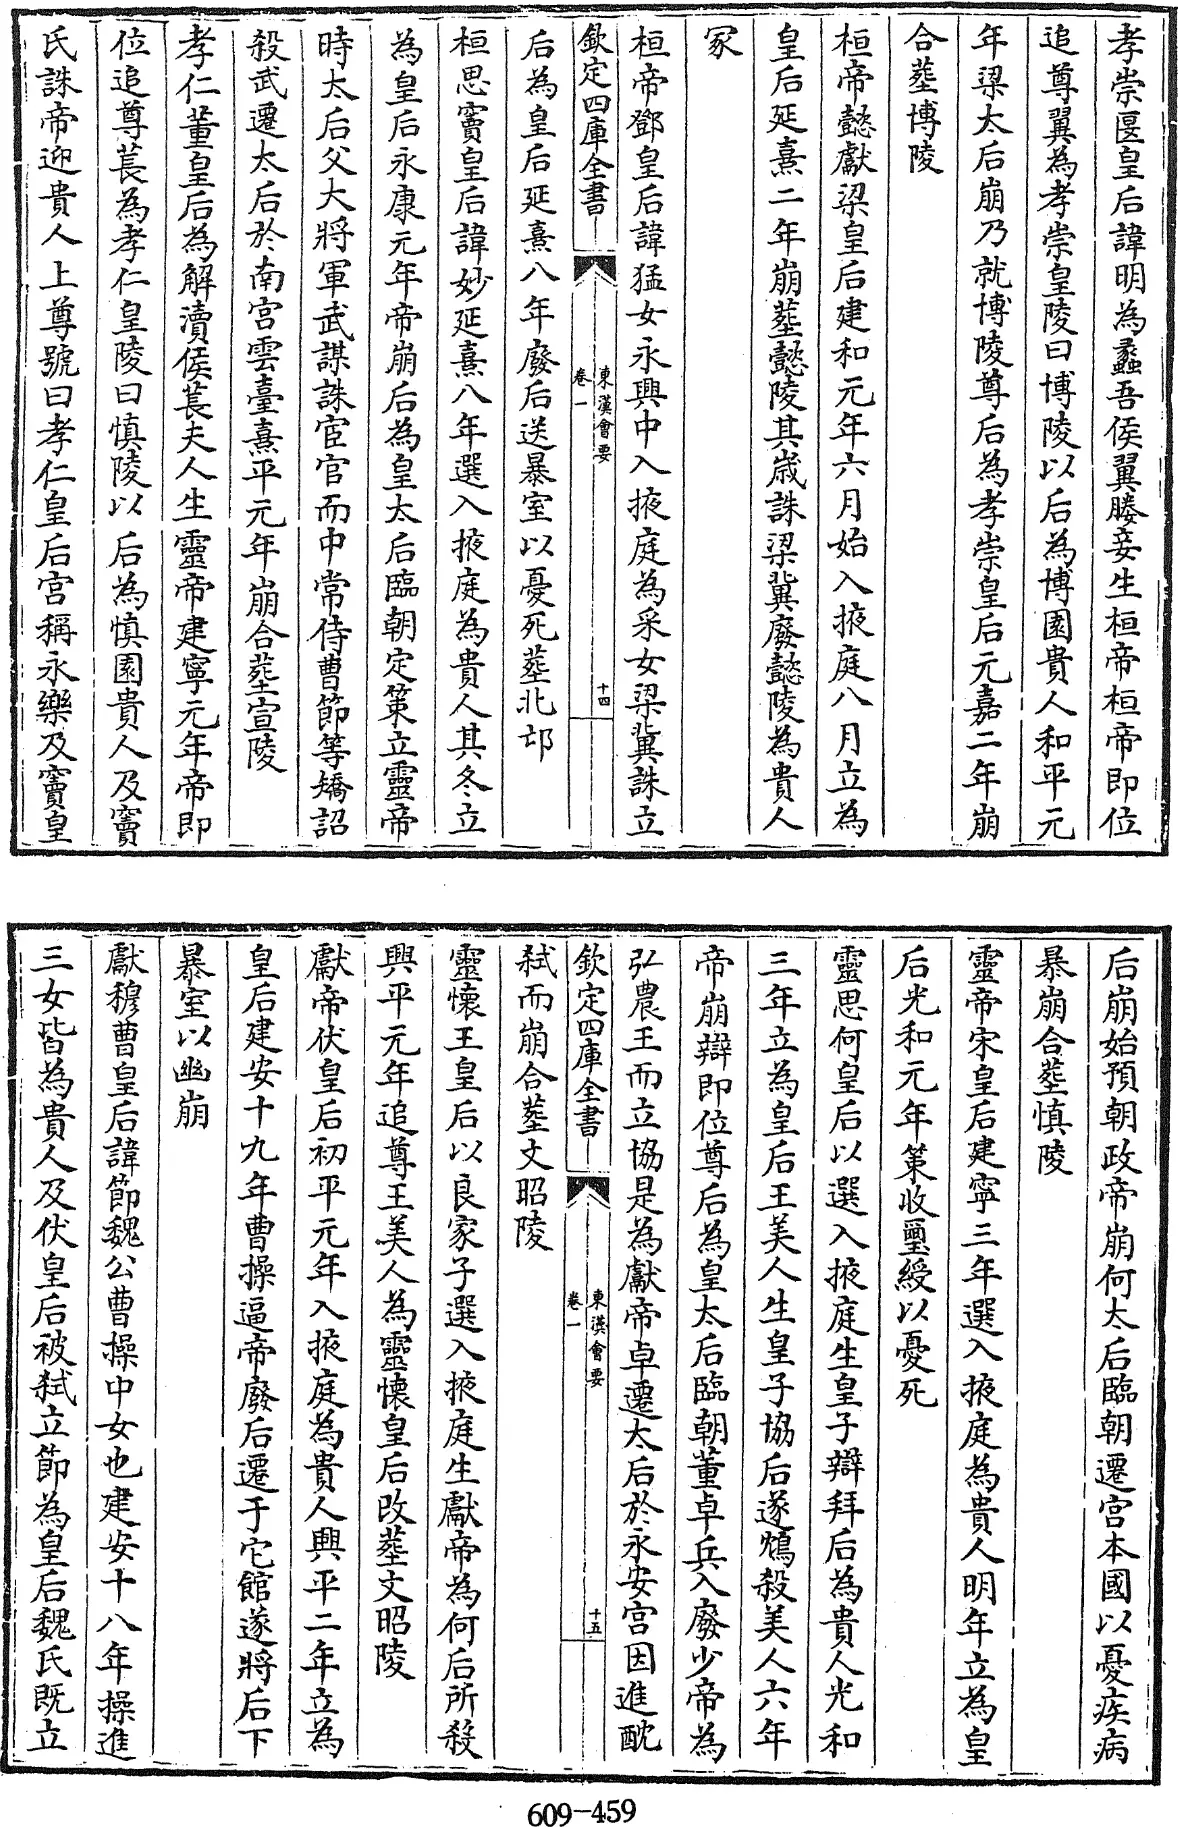 孝崇匽皇后諱明為蠡吾侯翼媵妾生桓帝桓帝即位
追尊翼為孝崇皇陵曰博陵以后為博園貴人和平元
年梁太后崩乃就博陵尊后為孝崇皇后元嘉二年崩
合塟博陵
桓帝懿獻梁皇后建和元年六月始入掖庭八月立為
皇后延熹二年崩塟懿陵其歲誅梁冀廢懿陵為貴人
冢
桓帝鄧皇后諱猛女永興中入掖庭為采女梁冀誅立
欽定四庫全書
東漢會要
卷一
十四
后為皇后延熹八年廢后送暴室以憂死塟北邙
桓思竇皇后諱妙延熹八年選入掖庭為貴人其冬立
為皇后永康元年帝崩后為皇太后臨朝定策立靈帝
時太后父大將軍武謀誅宦官而中常侍曹節等矯詔
殺武遷太后於南宮雲臺熹平元年崩合塟宣陵
孝仁董皇后為解瀆侯萇夫人生靈帝建寧元年帝即
位追尊萇為孝仁皇陵曰慎陵以后為慎園貴人及竇
氏誅帝迎貴人上尊號曰孝仁皇后宮稱永樂及竇皇
后崩始預朝政帝崩何太后臨朝遷宮本國以憂疾病
暴崩合塟慎陵
靈帝宋皇后建寧三年選入掖庭為貴人明年立為皇
后光和元年策收璽綬以憂死
靈思何皇后以選入掖庭生皇子辯拜后為貴人光和
三年立為皇后王美人生皇子協后遂鴆殺美人六年
帝崩辯即位尊后為皇太后臨朝董卓兵入廢少帝為
弘農王而立協是為獻帝卓遷太后於永安宮因進酖
欽定四庫全書
東漢會要
卷一
十五
弒而崩合塟文昭陵
靈懷王皇后以良家子選入掖庭生獻帝為何后所殺
興平元年追尊王美人為靈懷皇后改塟文昭陵
獻帝伏皇后初平元年入掖庭為貴人興平二年立為
皇后建安十九年曹操逼帝廢后遷于它館遂將后下
暴室以幽崩
獻穆曹皇后諱節魏公曹操中女也建安十八年操進
三女皆為貴人及伏皇后被弒立節為皇后魏氏既立
609-459